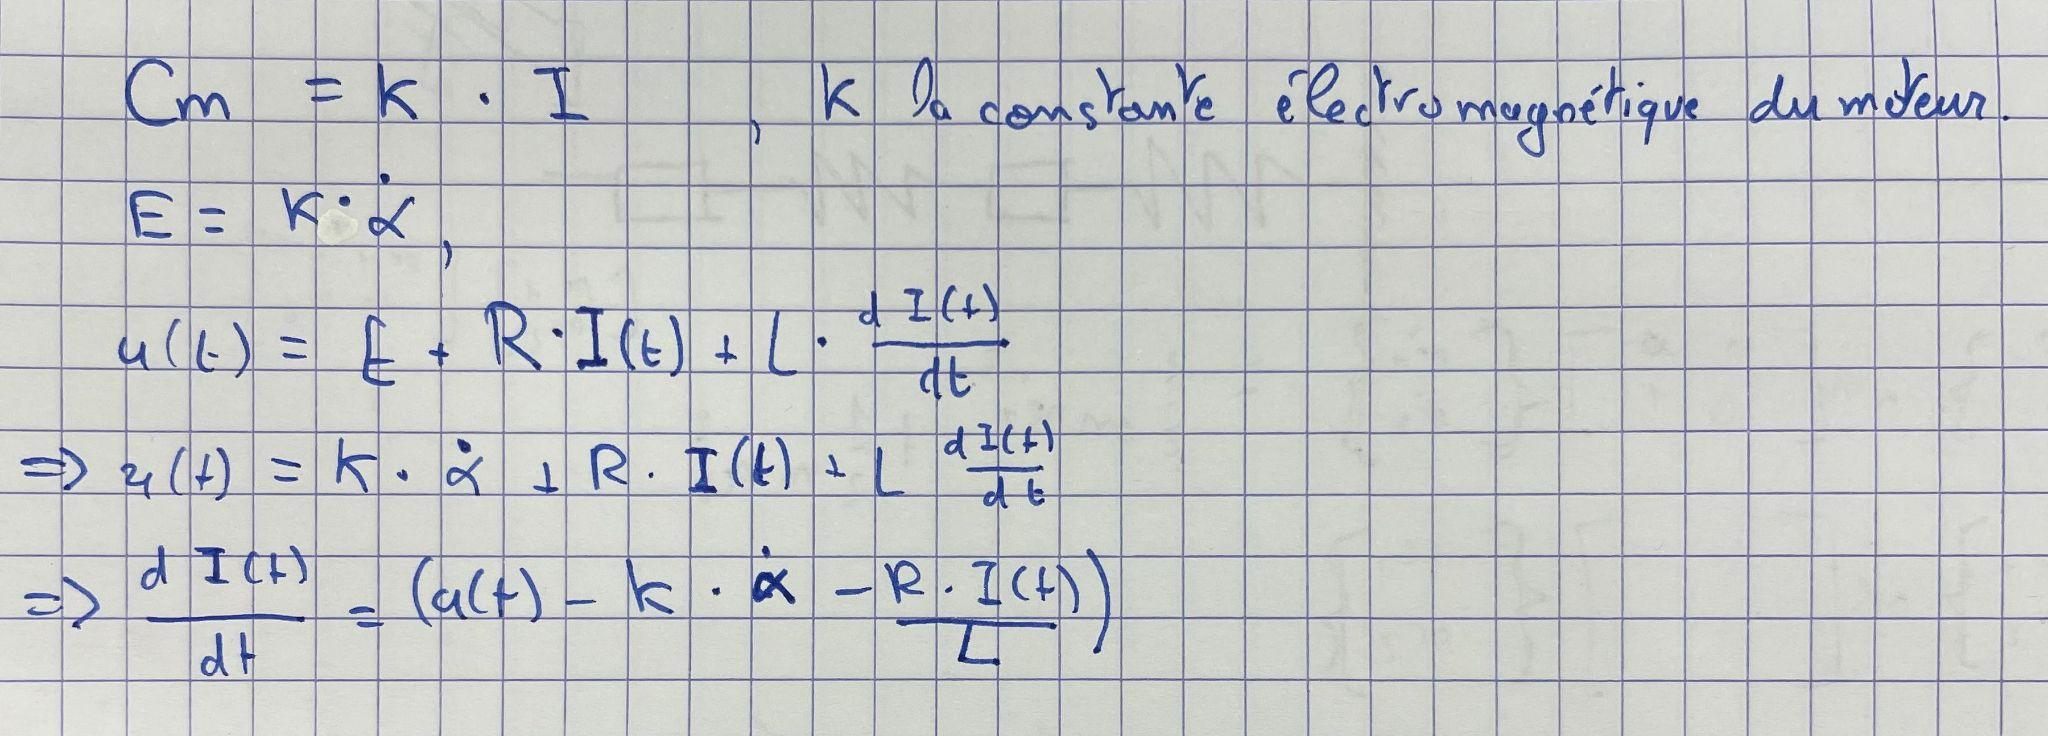 Cm = K · I , K la constante électromagnétique du moteur.
E = K · α̇ ,
u(t) = E + R · I(t) + L · dI(t)/dt
=> u(t) = K · α̇ + R · I(t) + L dI(t)/dt
=> dI(t)/dt = (u(t) - K · α̇ - R · I(t)/L)